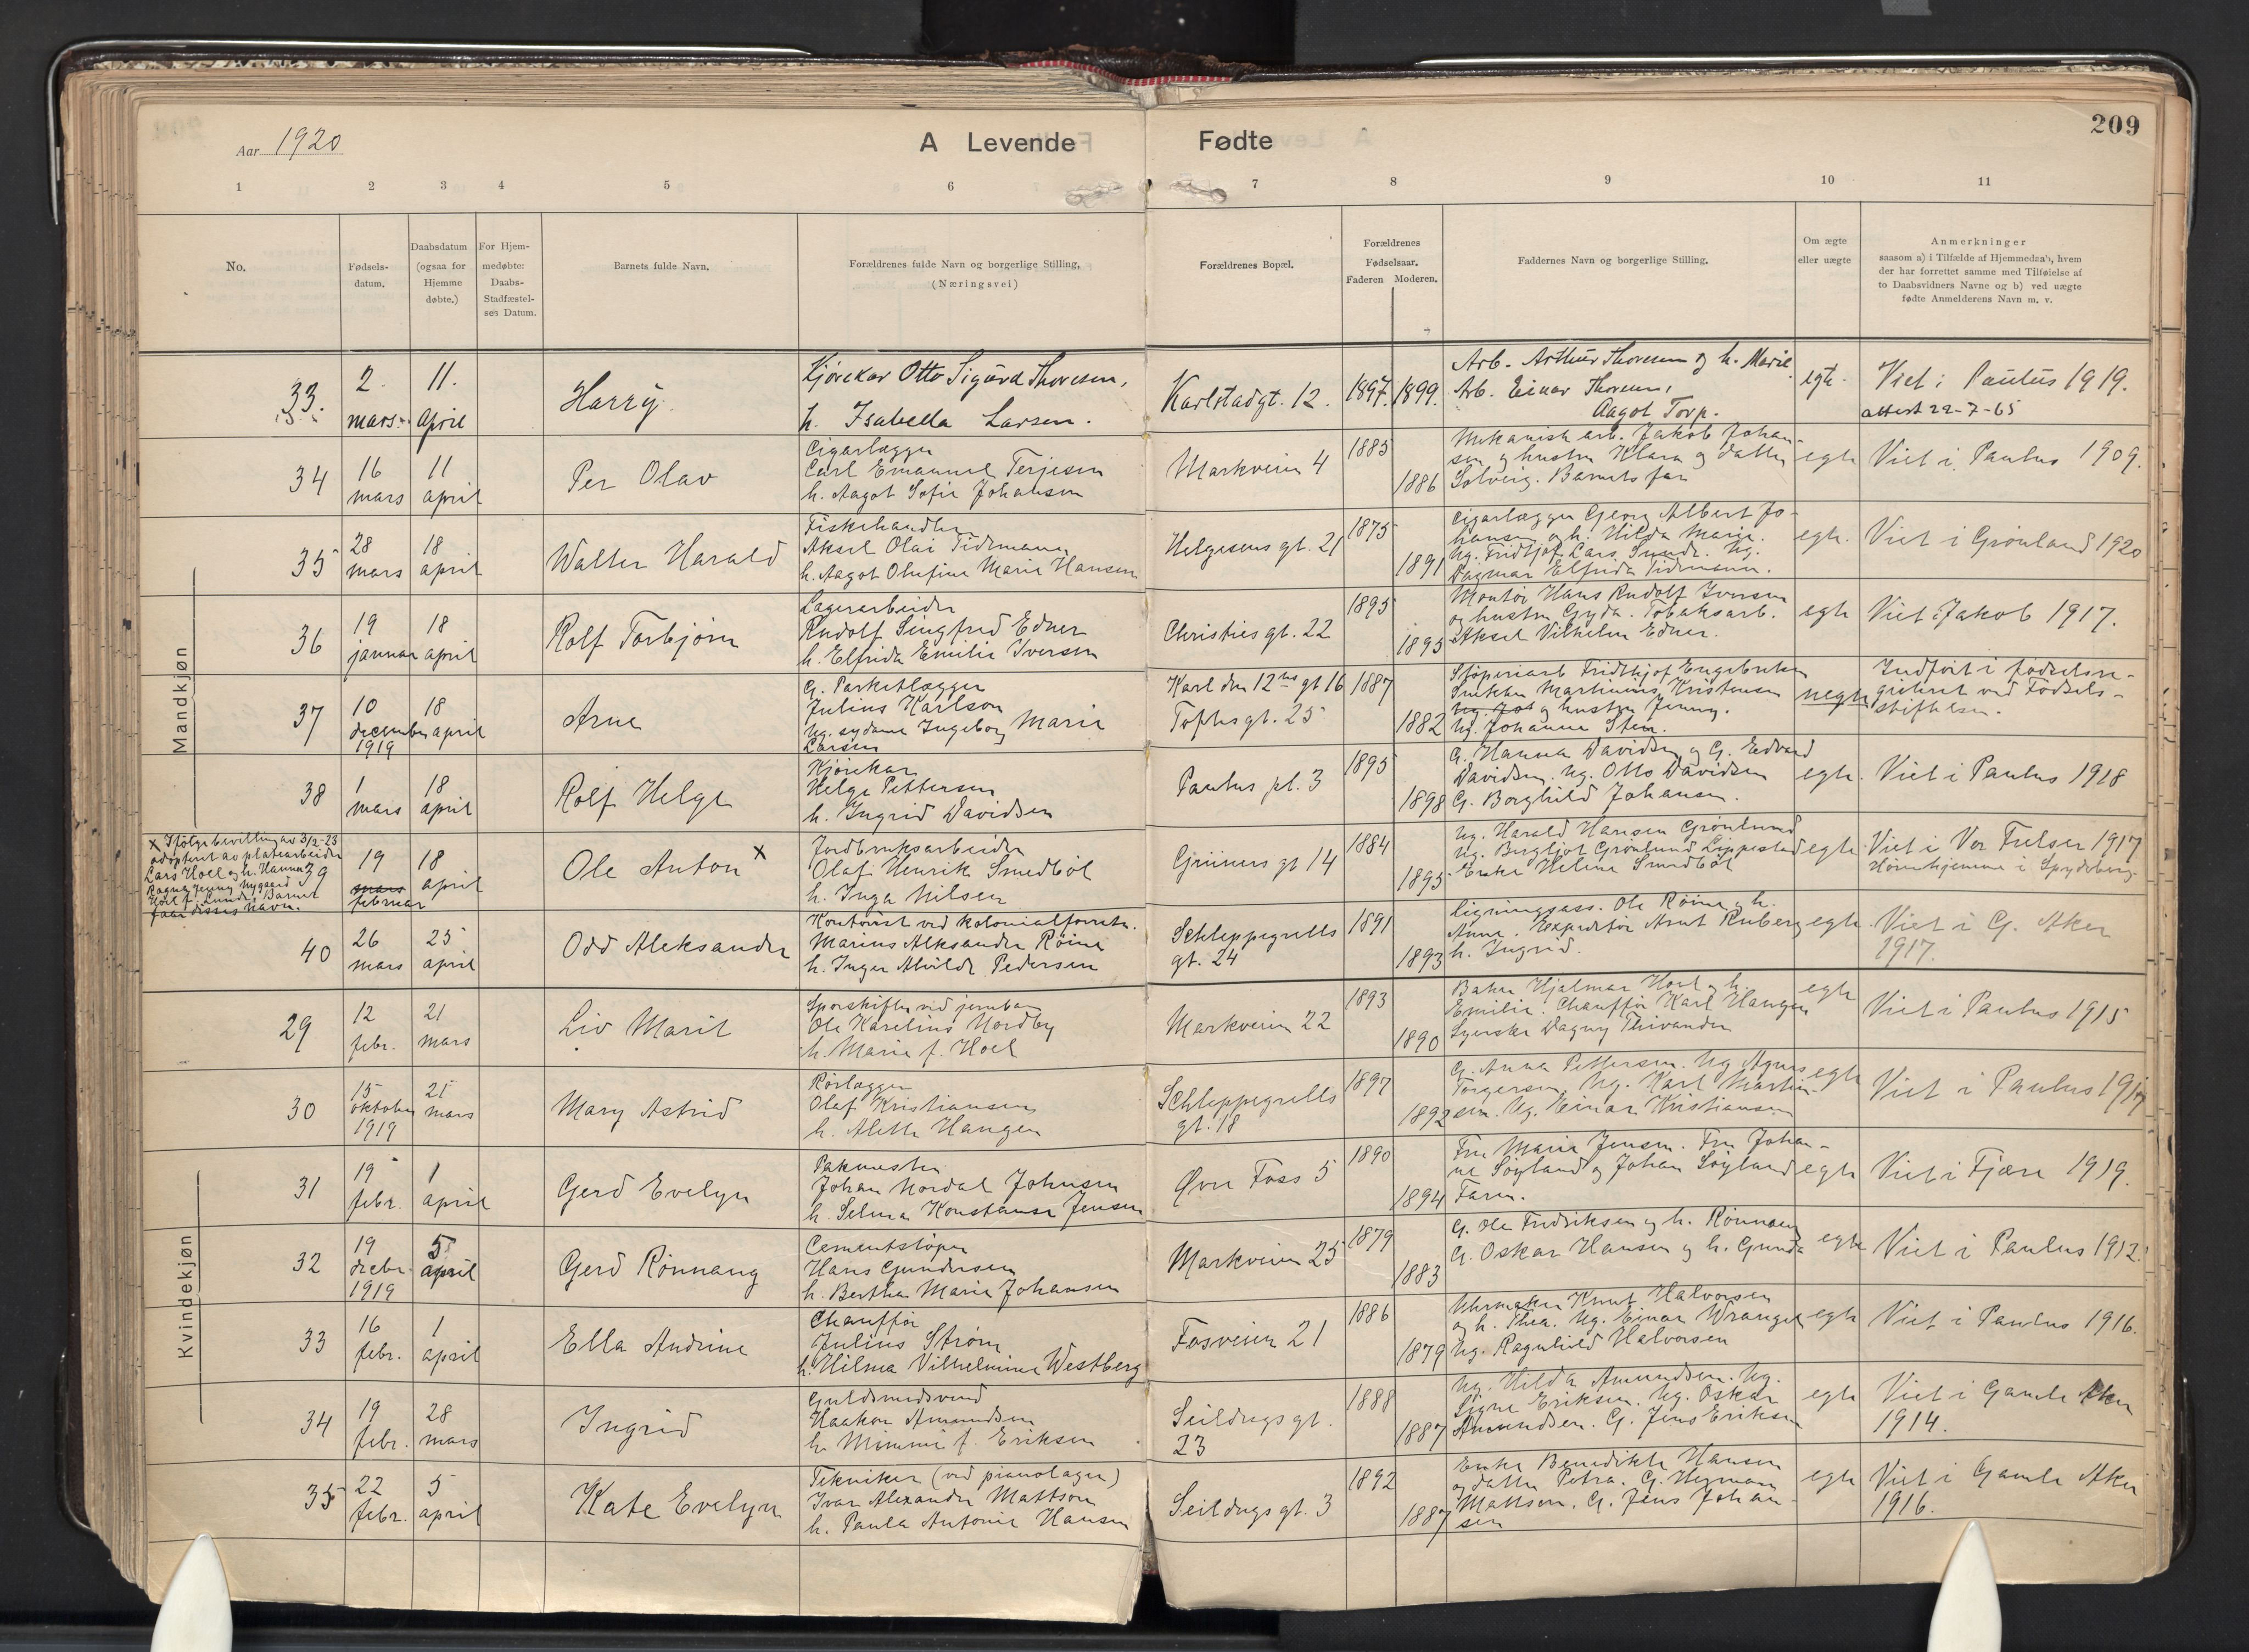 209
Aar 1920
A Levende Fødte
1 2 3 4 5 6 7 8 9 10 11
No.
Fødsels-
datum.
Daabsdatum
(ogsaa for
Hjemme
døbte.)
For Hjem-
medøbte:
Daabs-
Stadfæstel-
ses Datum.
Barnets fulde Navn.
Forældrenes fulde Navn og borgerlige Stilling,
(Næringsvei)
Forældrenes Bopæl.
Forældrenes
Fødselsaar.
Faderen Moderen.
Faddernes Navn og borgerlige Stilling.
Om ægte
eller uægte
Anmerkninger
saasom a) i Tilfælde af Hjemmedaab, hvem
der har forrettet samme med Tilføielse af
to Daabsvidners Navne og b) ved uægte
fødte Anmelderens Navn m. v.
Mandkjøn
33.
2.
mars.
11.
April
Harry.
Kjørekar Otto Sigurd Thoresen,
h. Isabella Larsen.
Karlstadgt. 12.
1897. 1899.
Arb. Arthur Thoresen og h. Marie
Arb. Einar Thoresen,
Aagot Torp.
egte.
Viet i Paulus 1919.
attest 22-7-65
34
16
mars
11
april
Per Olav
Cigarlægger
Carl Emanuel Terjesen
h. Aagot Sofie Johansen
Markveien 4
1885
1886
Mekanisk arb. Jakob Johan-
sen og hustru Klara og datter
Solveig. Barnets far
egte
Viet i Paulus 1909.
35
28
mars
18
april
Walter Harald
Fiskehandler
Aksel Olai Tidemann
h. Aagot Olufine Marie Hansen
Helgesens gt. 21
1875
1891
Cigarlægger Georg Albert Jo-
hansen og h. Hilda Marie.
Ug. Fridtjof Lars Sunde. Ug.
Dagmar Elfrida Tidemann.
egte.
Viet i Grønland 1920
36
19
januar
18
april
Rolf Torbjørn
Lagerarbeider
Rudolf Singfred Edner
h. Elfrida Emilie Iversen
Christies gt. 22
1895
1895
Montør Hans Rudolf Iversen
og hustru Gyda. Tobaksarb.
Aksel Vilhelm Edner.
egte
Viet i Jakob 1917.
37
10
december
1919
18
april
Arne
G. Parketlægger
Julius Karlson
Ug. sydame Ingeborg Marie
Larsen
Karl den 12tes gt 16
Toftesgt. 25
1887
1882
Støperiarb Fridthjof Engebretsen
Snekker Martinius Kristensen
og hustru Jenny.
Ug. Johanne Sten.
uegte
Indført i fødselsre-
gisteret ved Fødsels-
stiftelsen.
38
1
mars
18
april
Rolf Helge
Kjørekar
Helge Pettersen
h. Ingrid Davidsen
Paulus pl. 3
1895
1898
G. Hanna Davidsen og G. Edvard
Davidsen. Ug. Otto Davidsen
G. Borghild Johansen.
egte.
Viet i Paulus 1918
x Ifølge bevilling av 3/2-23
adopteret av platearbeider
Lars Hoel og h. Hanna
Ragna Jenny Nygaard
Hoel f. Lunde. Barnet
faar disses navn.
39
19
mars
februar
18
april
Ole Anton x
Jordbruksarbeider
Olaf Henrik Smedbøl
h. Inga Nilsen
Grüners gt 14
1884
1895
Ug. Harald Hansen Grønlund
Ug. Bergljot Grønlund Leppestad
Enke Helene Smedbøl
egte
Viet i Vor Frelser 1917
Hører hjemme i Spydeberg.
40
26
mars
25
april
Odd Aleksander
Kontorist ved kolonialforretn.
Marius Aleksander Røine
h. Inger Alvilde Pedersen
Schleppegrells
gt. 24
1891
1893
Ligningsass. Ole Røine og h.
Anne. Expeditør Arnt Ruberg
h. Ingrid.
egte
Viet i G. Aker
1917.
Kvindekjøn
29
12
febr.
21
mars
Liv Marit
Sporskifter ved jernban
Ole Karelius Nordby
h. Marie f. Hoel
Markveien 22
1893
1890
Baker Hjalmar Hoel og h.
Emilie. Chauffør Karl Haugen
Syerske Dagny Thivander
egte
Viet i Paulus 1915
30
15
oktober
1919
21
mars
Mary Astrid
Rørlægger
Olaf Kristiansen
h. Alette Haugen
Schleppegrells
gt. 18
1897
1892
G. Anna Pettersen. Ug Agnes
Torgersen. Ug. Karl Martin-
sen. Ug. Einar Kristiansen
egte
Viet i Paulus 1917
31
19
febr.
1
april
Gerd Evelyn
Pakmester
Johan Nordal Johnsen
h. Selma Konstanse Jensen
Øvre Foss 5
1890
1894
Fru Marie Jensen. Fru Johan-
ne Søyland og Johan Søyland
Faren.
egte
Viet i Fjære 1919.
32
19
decbr.
1919
5
april
Gerd Rønnaug
Cementstøper
Hans Gundersen
h. Bertha Marie Johansen
Markveien 25
1879
1883
G. Ole Fredriksen og h. Rønnaug
G. Oskar Hansen og h. Gunda
egte
Viet i Paulus 1912.
33
16
febr.
1
april
Ella Andrine
Chauffør
Julius Strøm
h. Hilma Vilhelmine Westberg
Fosveien 21
1886
1879
Uhrmaker Knut Halvorsen
og h. Thea. Ug. Einar Wrangel
Ug. Ragnhild Halvorsen
egte
Viet i Paulus 1916.
34
19
febr.
28
mars
Ingrid
Guldsmedsvend
Haakon Amundsen
h. Mimmi f. Eriksen
Seildugsgt.
23
1888
1887
Ug. Hilda Amundsen. Ug.
Signe Eriksen. Ug. Oskar
Amundsen. G. Jens Eriksen
egte
Viet i Gamle Aker
1914.
35
22
febr.
5
april
Kate Evelyn
Tekniker (ved pianolager)
Ivar Alexander Mattson
h. Paula Antonie Hansen
Seildugsgt. 3
1892
1887
Enke Benedikte Hansen
og datter Petra. G. Herman
Mattson. G. Jens Johan-
sen
egte
Viet i Gamle Aker
1916.